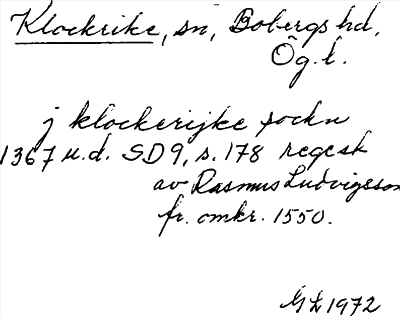 Klockrike, sn, Bobergs hd,
Ög. l.
j klockerijke sockn
1367 u.d. SD 9, s. 178 regest
av Rasmus Ludvigsson
fr. omkr. 1550.
GL 1972